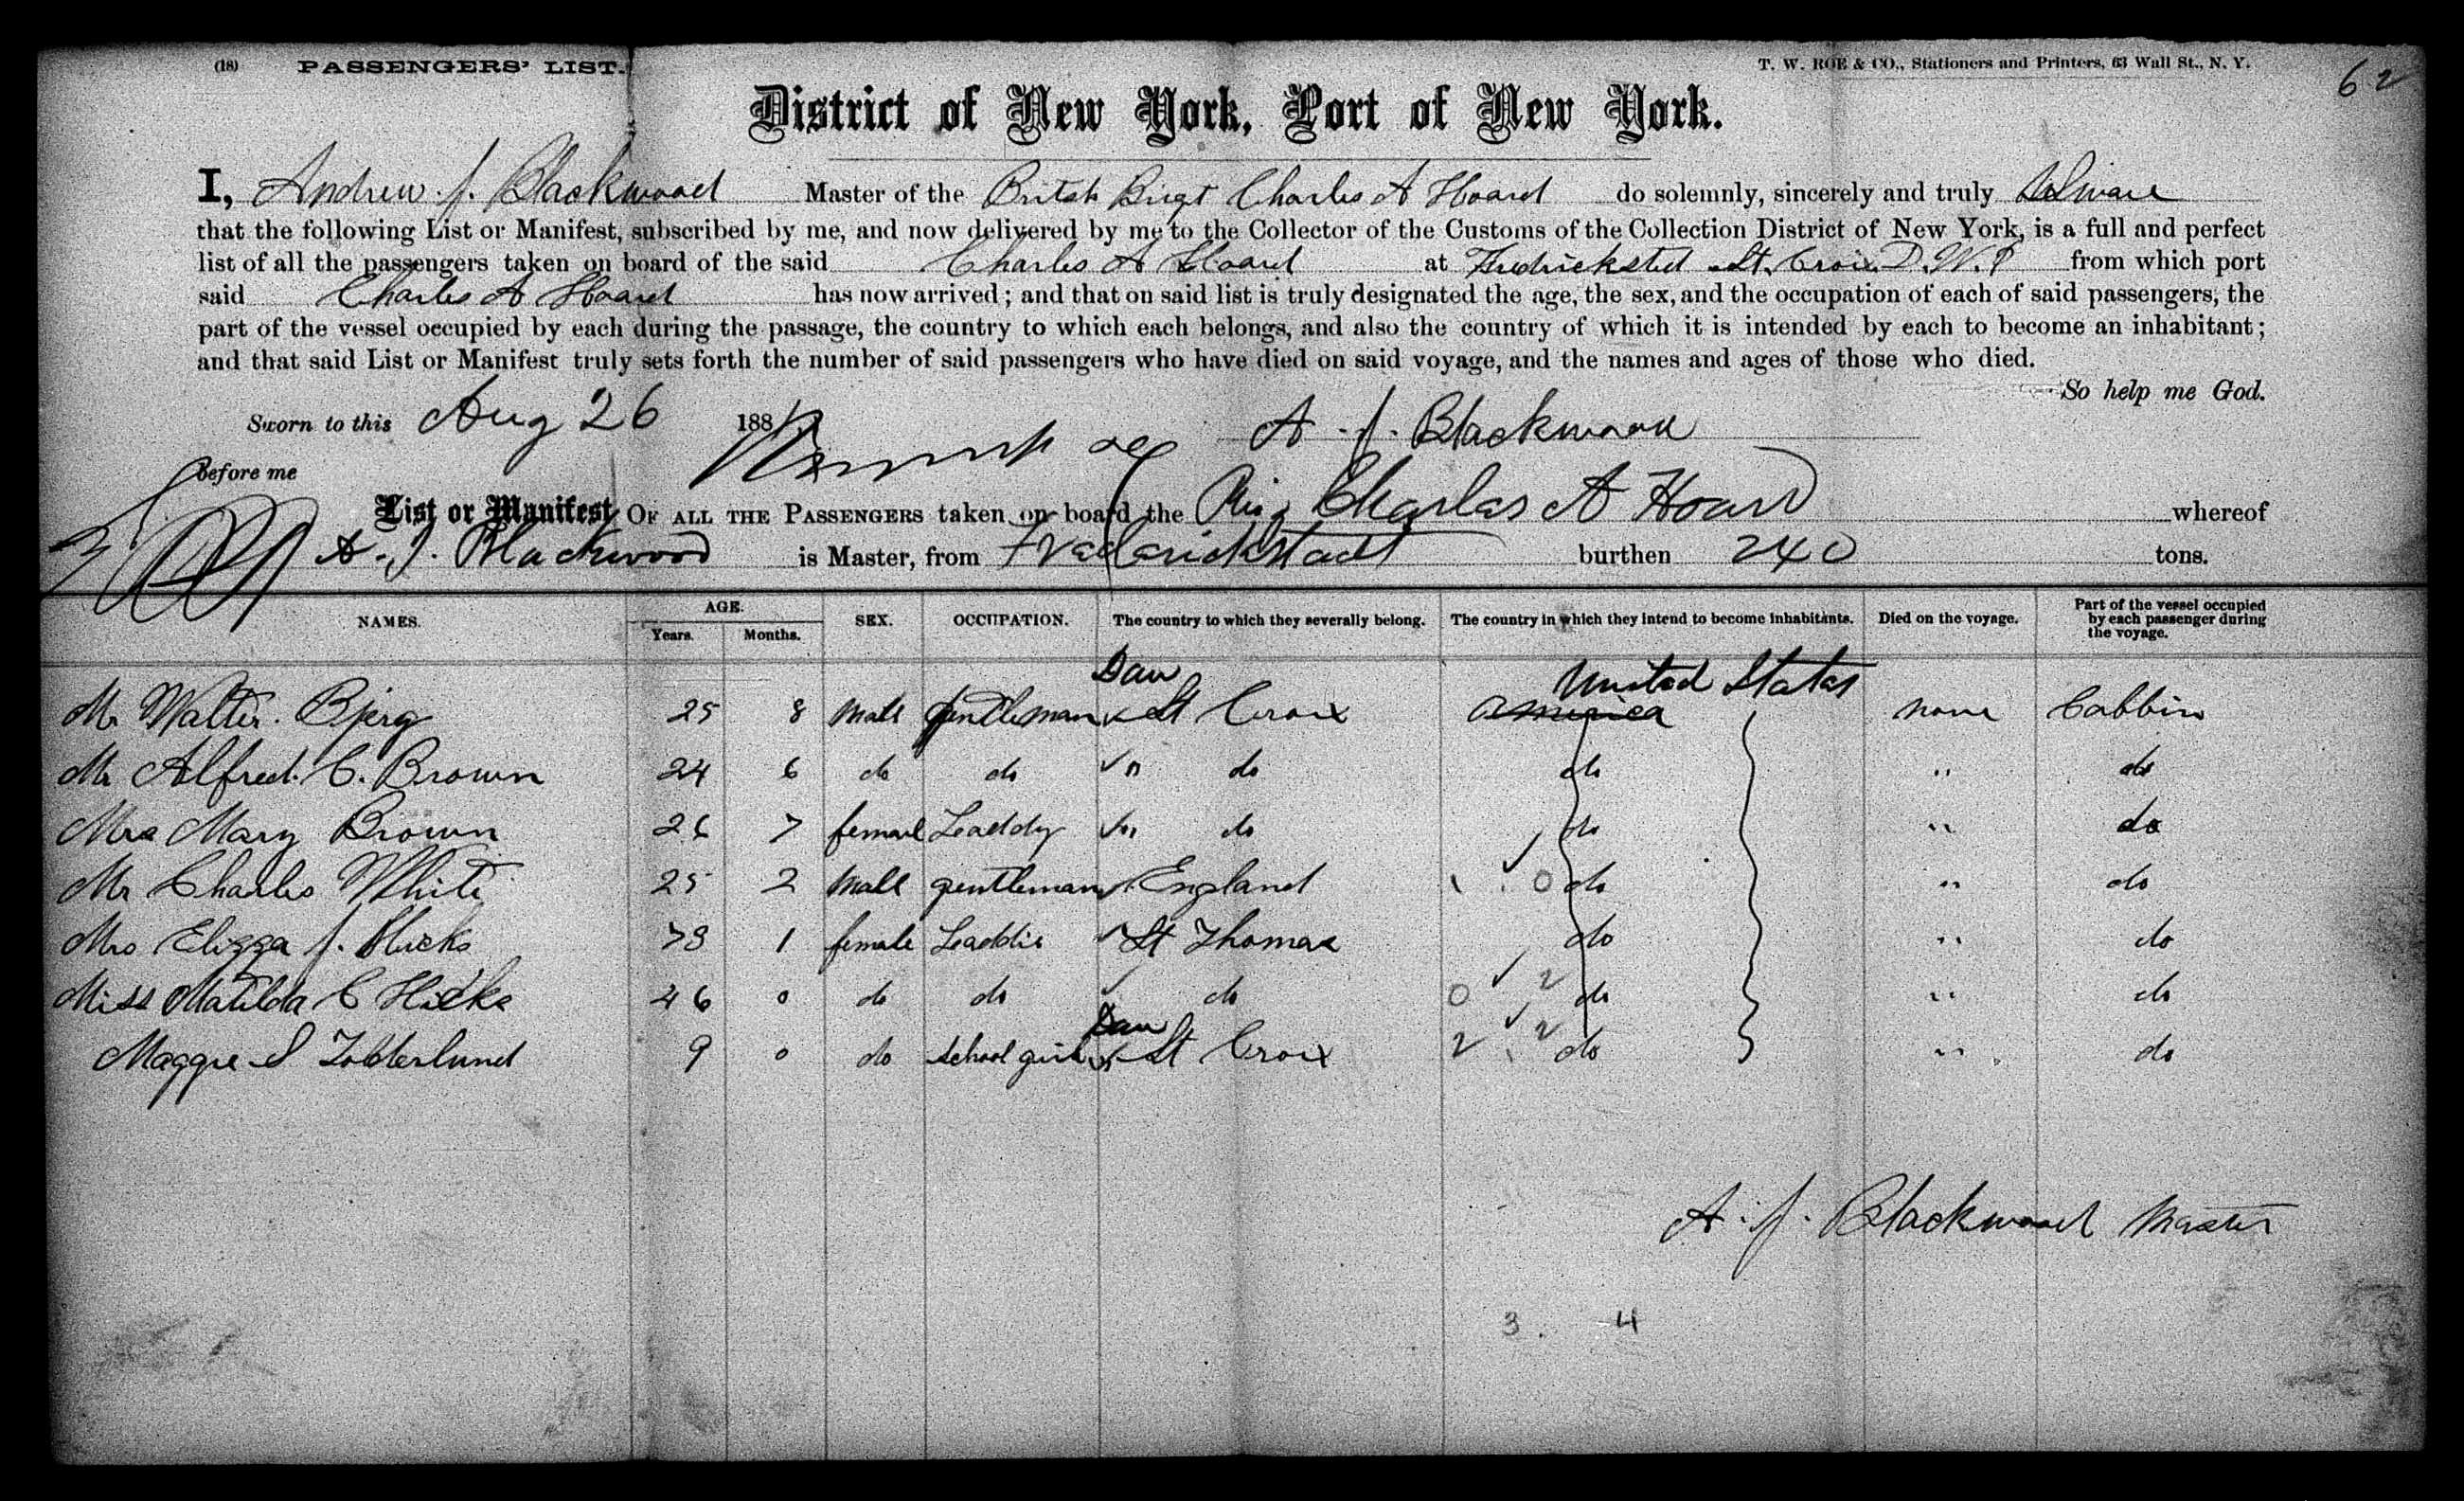 (18) PASSENGERS' LIST. T. W. ROE & CO., Stationers and Printers, 63 Wall St., N. Y.
62
District of New York, Port of New York.
I, Andrew. J. Blackwood Master of the Britsh Brigt Charles A Hoard do solemnly, sincerely and truly
that the following List or Manifest, subscribed by me, and now delivered by me to the Collector of the Customs of the Collection District of New York, is a full and perfect
list of all the passengers taken on board of the said Charles A Hoard at Fredricksted St. Croix D. W. I from which port
said Charles A Hoard has now arrived; and that on said list is truly designated the age, the sex, and the occupation of each of said passengers, the
part of the vessel occupied by each during the passage, the country to which each belongs, and also the country of which it is intended by each to become an inhabitant;
and that said List or Manifest truly sets forth the number of said passengers who have died on said voyage, and the names and ages of those who died.
So help me God.
Sworn to this Aug 26 188 A. J. Blackwood
Before me
List or Manifest OF ALL THE PASSENGERS taken on board the Charles A Hoard whereof
A. J. Blackwood is Master, from Frederickstadt burthen 240 tons.
NAMES. AGE. Years. Months. SEX. OCCUPATION. The country to which they severally belong. The country in which they intend to become inhabitants. Died on the voyage. Part of the vessel occupied by each passenger during the voyage.
Dan United States
Mr Walter. Bjerg 25 8 Male gentleman St Croix America none Cabbin
Mr Alfred. C. Brown 24 6 do do " do do " do
Mrs Mary Brown 26 7 femail Leaddy " do do " do
Mr Charles White 25 2 Male gentleman England 0 do " do
Mrs Elizza J. Hicks 78 1 female Leaddie St Thomas do " do
Miss Matilda C Hicks 46 0 do do do 0 2 do " do
Dan
Maggie S Tolderlund 9 0 do school girl St Croix 2 2 do " do
A. J. Blackwood Master
3. 4